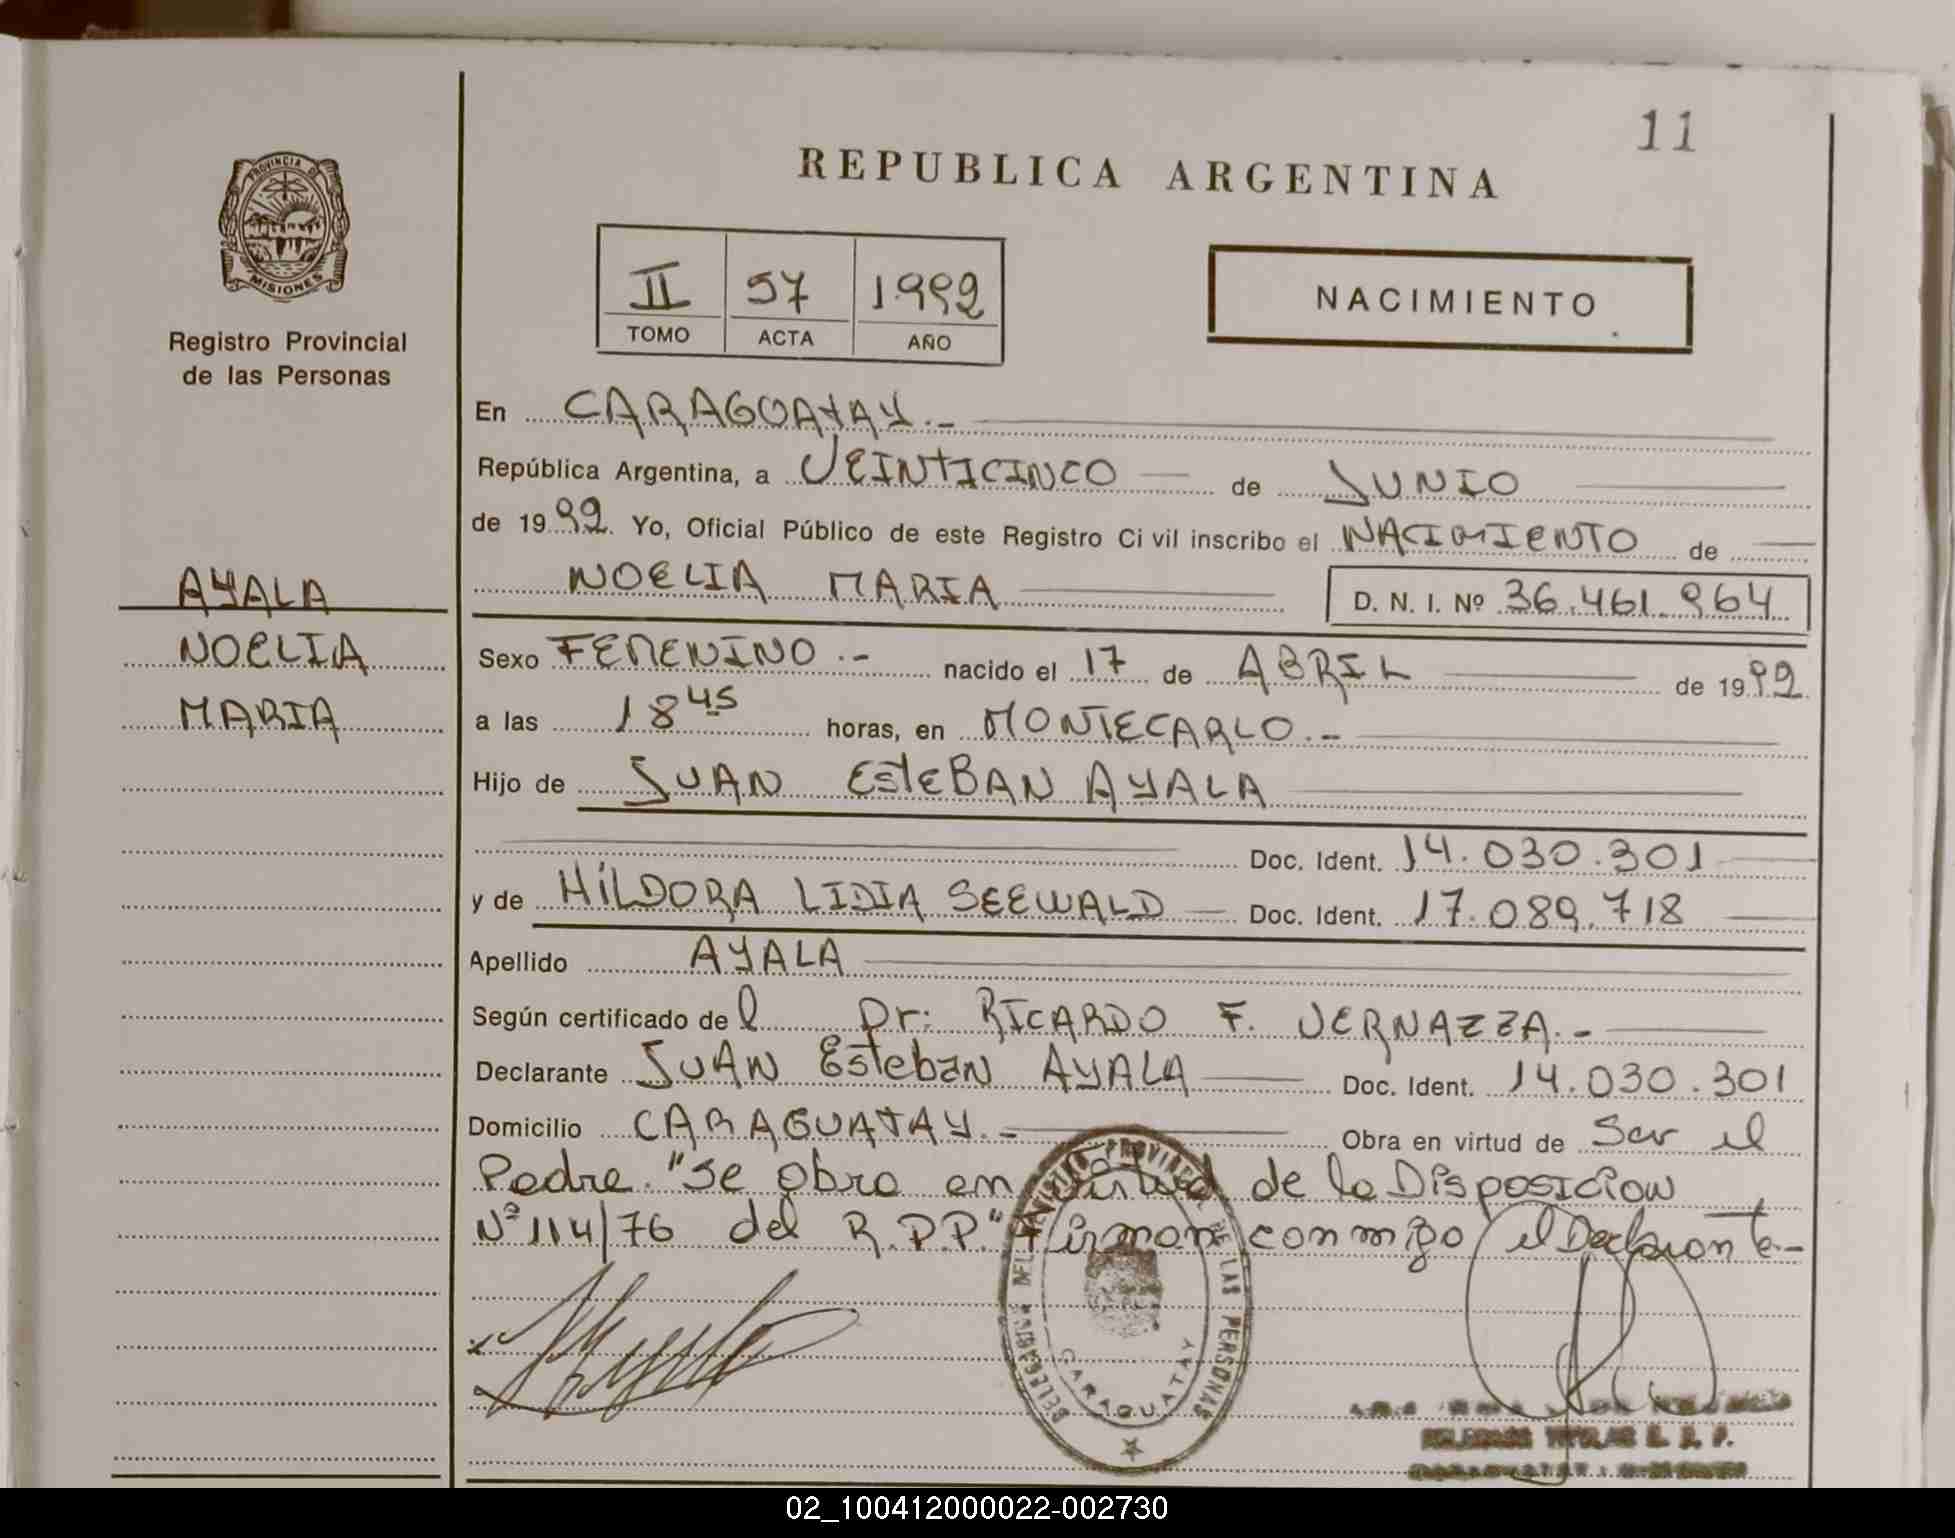 11
REPUBLICA ARGENTINA
PROVINCIA D
MISIONES
Registro Provincial
de las Personas
II 57 1992
TOMO ACTA AÑO
NACIMIENTO
En CARAGUATAY.-
República Argentina, a VEINTICINCO de JUNIO
de 1992. Yo, Oficial Público de este Registro Civil inscribo el NACIMIENTO de
NOELIA MARIA D. N. I. Nº 36.461.964
AYALA
NOELIA
MARIA
Sexo FEMENINO.- nacido el 17 de ABRIL de 1992
a las 18 45 horas, en MONTECARLO.-
Hijo de JUAN ESTEBAN AYALA
Doc. Ident. 14.030.301
y de HILDORA LIDIA SEEWALD Doc. Ident. 17.089.718
Apellido AYALA
Según certificado del Dr: RICARDO F. VERNAZZA.-
Declarante JUAN Esteban AYALA Doc. Ident. 14.030.301
Domicilio CARAGUATAY.- Obra en virtud de Ser el
Padre. "Se obra en virtud de la DISPOSICION
Nº 114/76 del R.P.P." Firman conmigo el Declarante-
DELEGACION DEL REGISTRO PROVINCIAL DE LAS PERSONAS
CARAGUATAY
02_100412000022-002730